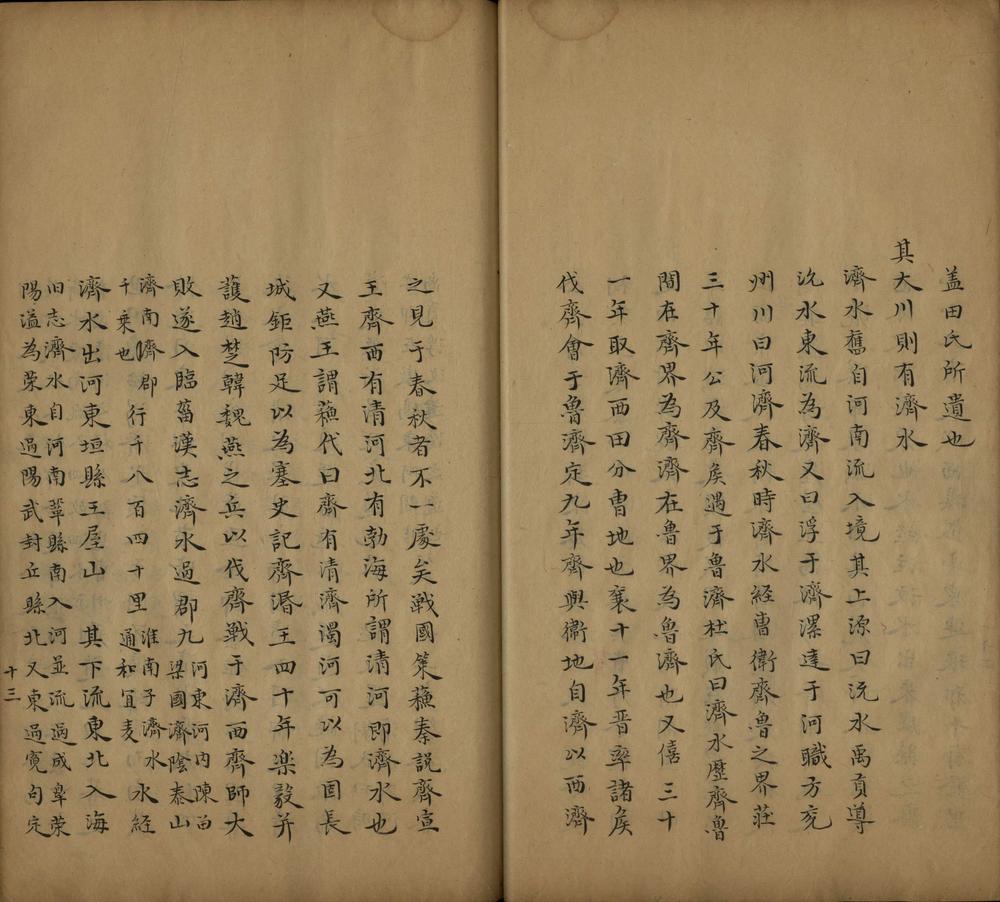 盖田氏所遺也
其大川則有濟水
濟水舊自河南流入境其上源曰沇水禹貢導
沇水東流為濟又曰浮于濟漯達于河職方兖
州川曰河濟春秋時濟水経曹衛齊魯之界莊
三十年公及齊矦遇于魯濟杜氏曰濟水歴齊魯
間在齊界為齊濟在魯界為魯濟也又僖三十
一年取濟西田分曹地也襄十一年晋率諸矦
伐齊會于魯濟定九年齊與衛地自濟以西濟
之見于春秋者不一處矣戰國策蘓秦説齊宣
王齊西有清河北有勃海所謂清河即濟水也
又燕王謂蘓代曰齊有清濟濁河可以為固長
城鉅防足以為塞史記齊湣王四十年楽毅并
護趙楚韓魏燕之兵以伐齊戰于濟西齊師大
敗遂入臨菑漢志濟水過郡九河東河内陳畄
梁國濟陰泰山
濟南濟郡
千乗也行千八百四十里淮南子濟水
通和宜麦水経
濟水出河東垣縣王屋山其下流東北入海
旧志濟水自河南鞏縣南入河並流過成皐荣
陽溢為荣東過陽武封丘縣北又東過寃句定
十三